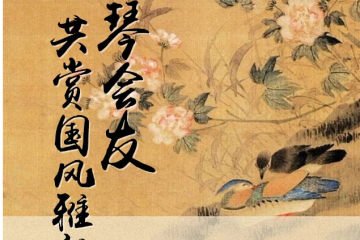 琴会友
共赏国风雅